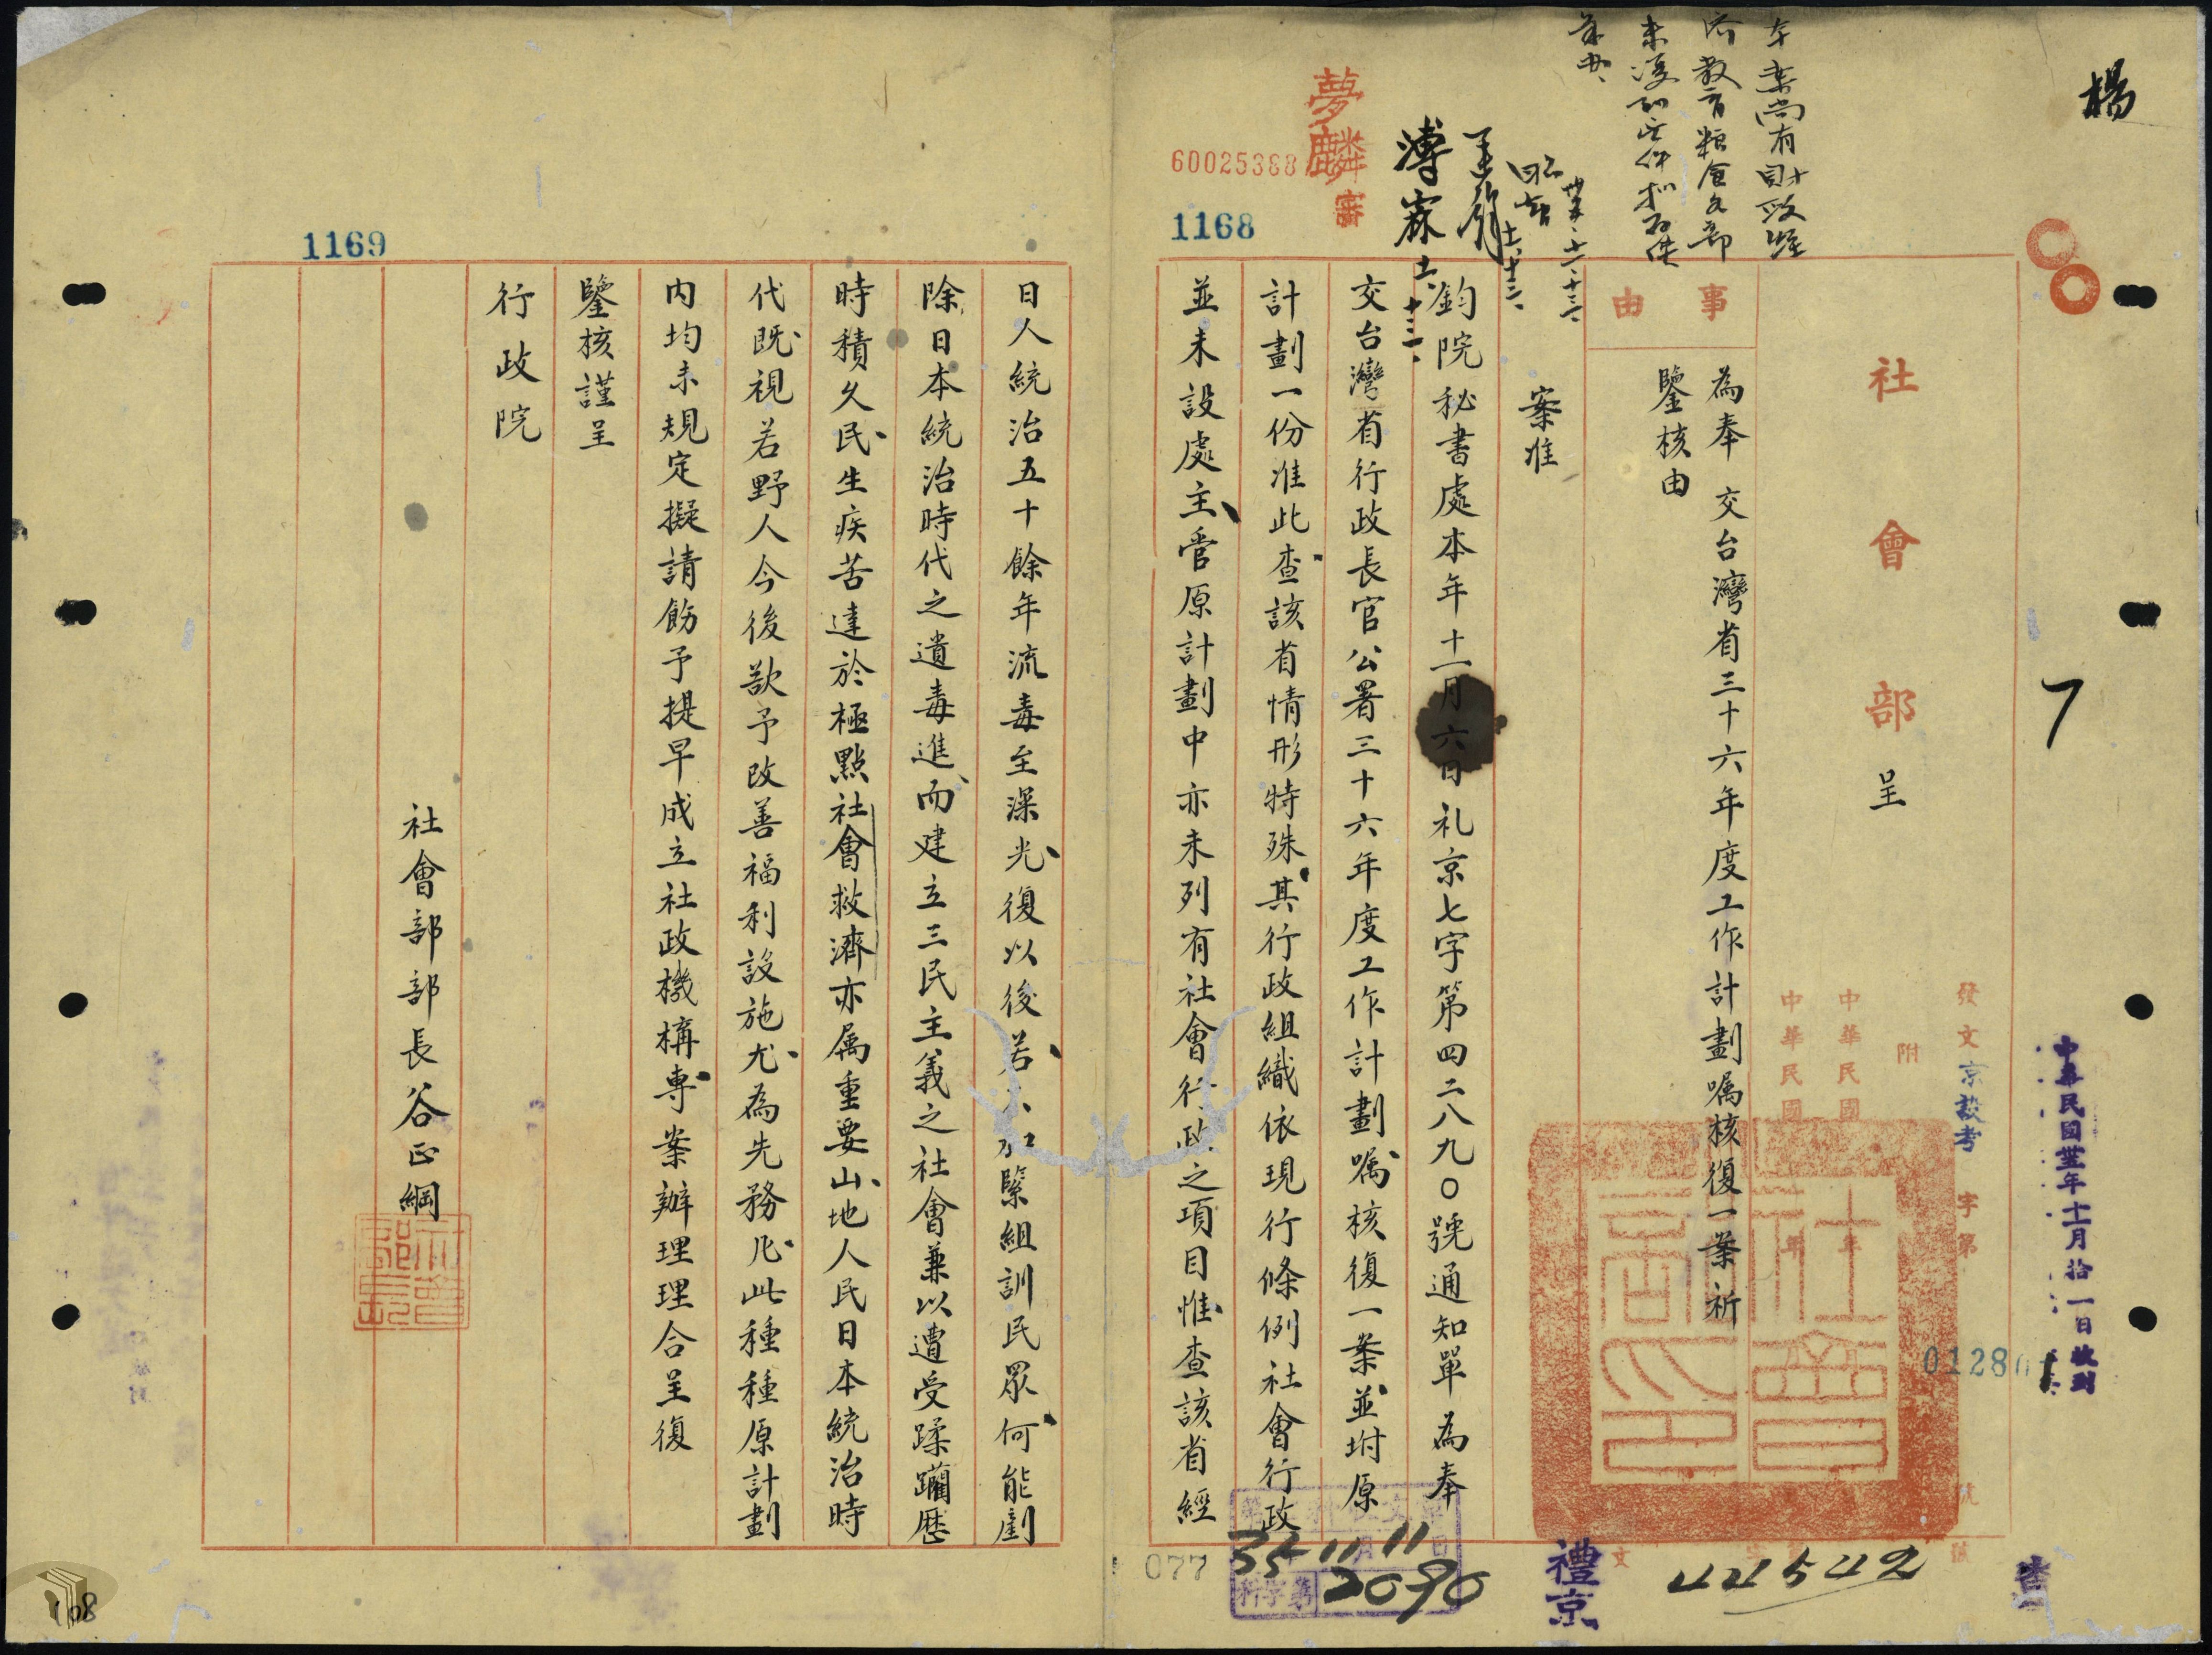 楊
7
本案尚有財政經
濟教育糧食各部
未復
社會部呈
發文京設考字第
號
01280
附
中華民國
年
中華民國
年
中華民國卅五年十一月拾一日收到
事由
為奉 交台灣省三十六年度工作計劃囑核復一案祈
鑒核由
卅五、十一、十三、
十一、十三、
溥霖
十一、十三、
夢麟
審
60025388
1168
案准
鈞院秘書處本年十一月六日礼京七字第四二八九〇號通知單為奉
交台灣省行政長官公署三十六年度工作計劃囑核復一案並坿原
計劃一份准此查該省情形特殊其行政組織依現行條例社會行政
並未設處主管原計劃中亦未列有社會行政之項目惟查該省經
社會部印
禮京
44542
35 11 11
2090
077
1169
日人統治五十餘年流毒至深光復以後若不加緊組訓民眾何能剷
除日本統治時代之遺毒進而建立三民主義之社會兼以遭受蹂躪歷
時積久民生疾苦達於極點社會救濟亦屬重要山地人民日本統治時
代既視若野人今後欲予改善福利設施尤為先務凡此種種原計劃
內均未規定擬請飭予提早成立社政機構專案辦理理合呈復
鑒核謹呈
行政院
社會部部長谷正綱
社會部長
108